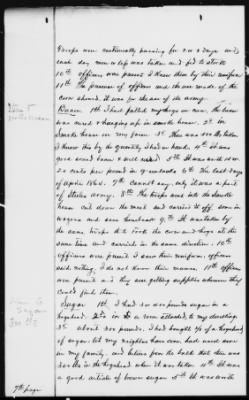 Troops were continually passing for 2 or 3 days and
each day more or less was taken and fed to stock
10th officers were present I knew them by their uniform
11th The presence of officers and the use made of the
corn showed it was for the use of the army.
Bacon 1st I had killed my hogs on corn, the bacon
was cured & hanging up in smoke house. 2d in
smoke house on my farm 3d there was 500 lbs taken
I knew this by the quantity I had on hand. 4th It was
good sound bacon & well cured 5th It was worth 15 or
20 cents per pound in 6th The last days
of April 1865. 7th Cannot say only it was a part
of army 8th The troops went into the smoke
house cut down the meat and carried it off some in
wagons and some 9th It was taken by
the same troops that took the corn and hogs at the
same time and carried in the same direction. 10th
officers were present I saw their uniform. officers
said nothing, I do not know their names. 11th officers
were present and they were getting supplies wherever they
could find them.
Sugar 1st I had 300 pounds sugar in a
hogshead. 2d in a room attached to my dwelling
3d about 300 pounds. I had bought 1/2 of a hogshead
of sugar, let my neighbor have some, had used some
in my family, and believe from the bulk that there was
300 lbs in the hogshead when it was taken 4th It was
a good article of brown sugar 5th It was worth
7th page